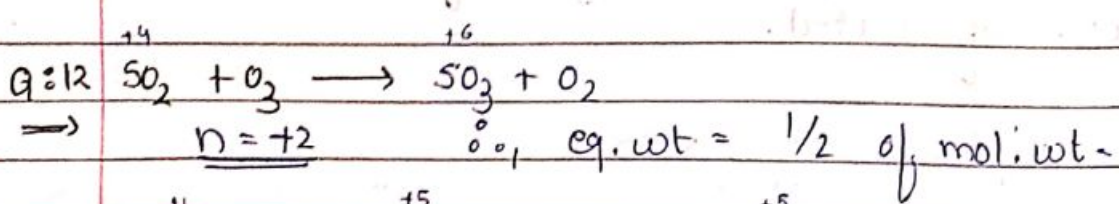 +4 +6
Q:12 SO₂ + O₃ ⟶ SO₃ + O₂
⟹ n = +2 ∴, eq. wt = 1/2 of mol. wt.
+5 +5